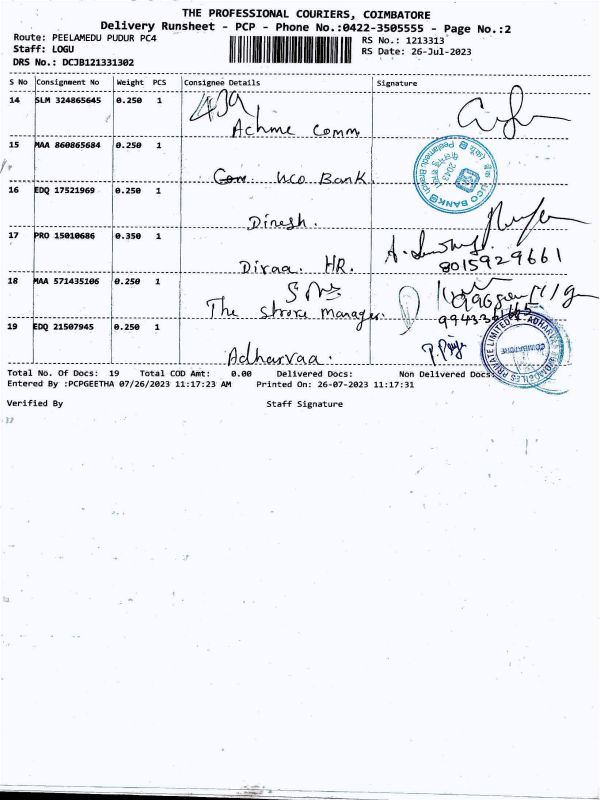 THE PROFESSIONAL COURIERS, COIMBATORE
Delivery Runsheet - PCP - Phone No.:0422-3505555 - Page No.:2
Route: PEELAMEDU PUDUR PC4 RS No.: 1213313
Staff: LOGU RS Date: 26-Jul-2023
DRS No.: DCJB121331302
S No Consignment No Weight PCS Consignee Details Signature
14 SLM 324865645 0.250 1
Achme Comm
15 MAA 860865684 0.250 1
UCO Bank
UCO BANK
16 EDQ 17521969 0.250 1
Dinesh.
17 PRO 15010686 0.350 1
8015929661
Diraa. HR.
18 MAA 571435106 0.250 1
The stroxe manager.
19 EDQ 21507945 0.250 1
PRIVATE LIMITED
COIMBATORE
Adharvaa.
Total No. Of Docs: 19 Total COD Amt: 0.00 Delivered Docs: Non Delivered Docs
Entered By :PCPGEETHA 07/26/2023 11:17:23 AM Printed On: 26-07-2023 11:17:31
Verified By Staff Signature